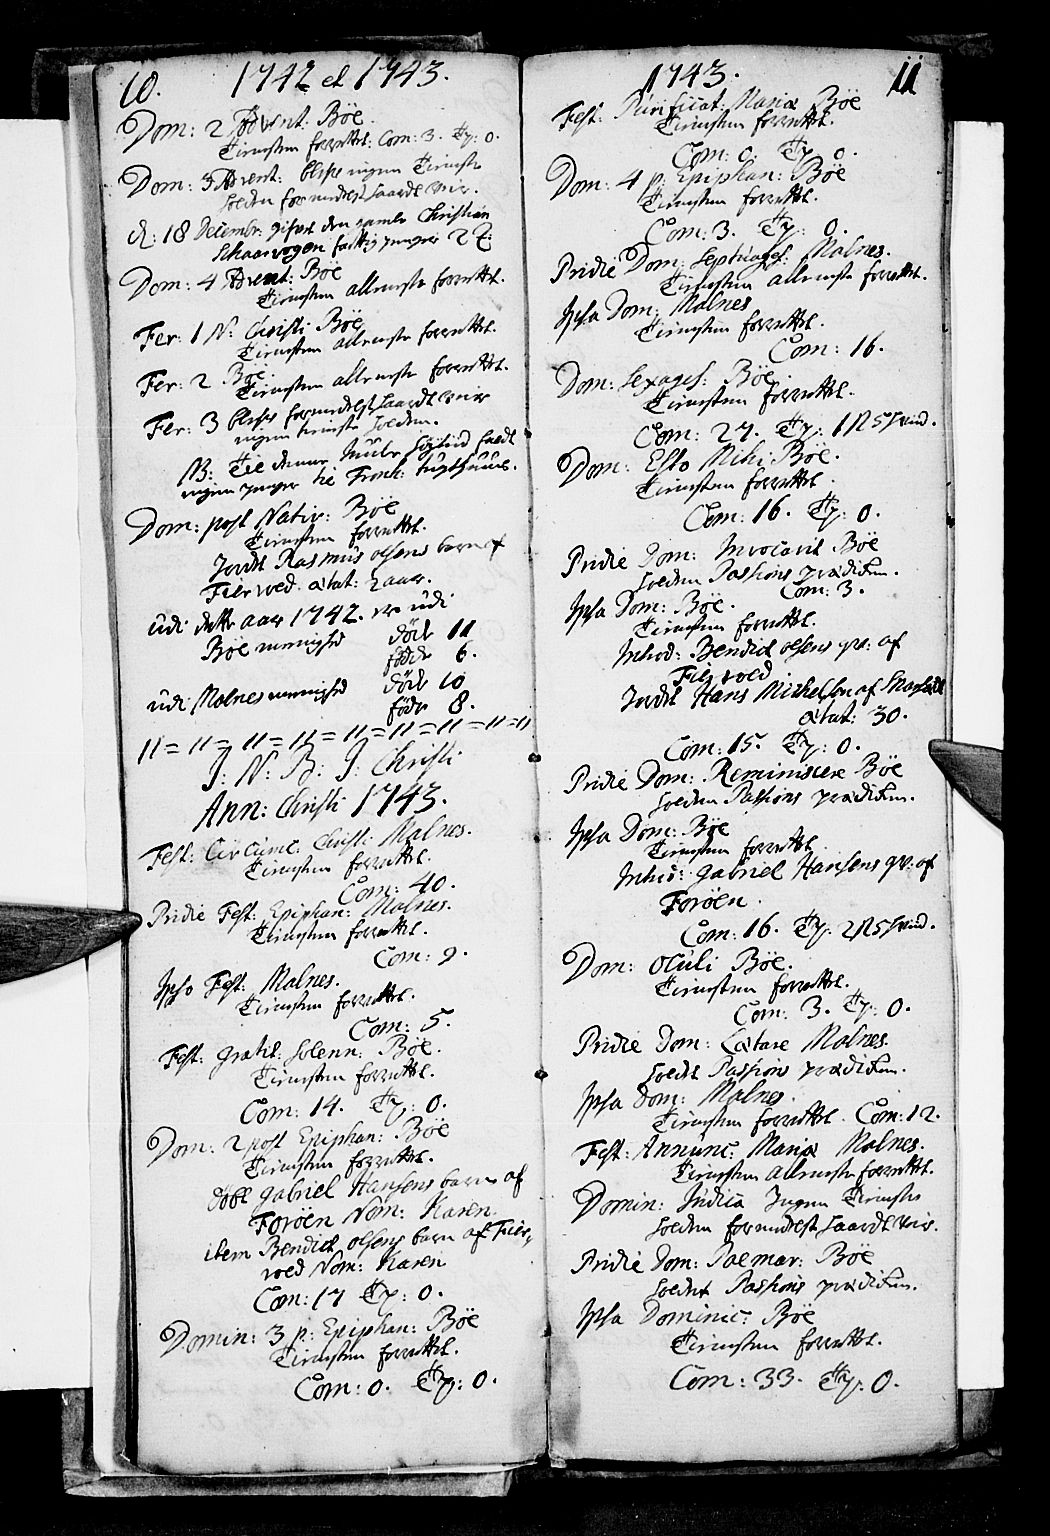 10. 1742 et 1743.
Dom: 2 Advent: Bøe.
Tienesten forrettet: Com: 3. Ty: 0.
Dom: 3 Advent: bleff ingen Tieneste
holden formedelst haardt veir.
d: 18 Decembr: gifvet den gamle Christian
Schaarvogen fattig penger 2
Dom: 4 Advent: Bøe
Tienesten alleneste forrettet.
Fer: 1 N: Christi Bøe
Tienesten alleneste forrettet.
Fer: 2 Bøe.
Tienesten alleneste forrettet.
Fer: 3 bleff formedelst haardt veir
ingen tieneste holden.
NB: Til denne Juule Høytiid faldt
ingen penger til Tronh: tugthuus.
Dom: post Nativ: Bøe
Tienesten forrettet.
Jordet Rasmus Olsens barn af
Fiervoed. ætat: 2 aar.
udi dette aar 1742. ere udi
Bøe menighed døde 11
fødde 6.
udi Malnes menighed døde 10
fødde 8.
11 = 11 = 11 = 11 = 11 = 11 = 11 = 11 = 11
J: N: B: J: Christi
Ann: Christi 1743.
Fest: Circumc: Christi Malnes.
Tienesten forrettet.
Com: 40.
Pridie Fest: Epiphan: Malnes.
Tienesten forrettet.
Com: 9.
Ipso Fest: Malnes.
Tienesten forrettet.
Com: 5.
Fest: gratil: solenn: Bøe.
Tienesten forrettet.
Com: 14. Ty: 0.
Dom: 2 post Epiphan: Bøe
Tienesten forrettet.
døbt Gabriel Hansens barn af
Forøen Nom: Karen.
item Bendict Olsens barn af Fier-
voed Nom: Karen
Com: 17 Ty: 0.
Domin: 3 p: Epiphan: Bøe
Tienesten forrettet.
Com: 0. Ty: 0.
1743. 11
Fest: Purificat: Mariæ Bøe
Tienesten forrettet.
Com: 0. Ty: 0.
Dom: 4 p: Epiphan: Bøe
Tienesten forrettet.
Com: 3. Ty: 0.
Pridie Dom: Septuages: Malnes.
Tienesten alleneste forrettet.
Ipsa Dom: Malnes
Tienesten forrettet.
Com: 16.
Dom: Sexages: Bøe.
Tienesten forrettet.
Com: 27. Ty: 1
Dom: Esto Mihi Bøe.
Tienesten forrettet.
Com: 16. Ty: 0.
Pridie Dom: Invocavit Bøe
holden Passions prædiken.
Com: 3.
Ipsa Dom: Bøe.
Tienesten forrettet.
Introd: Bendict Olsens qv: af
Fiervoed
Jordet Hans Michelsen af
ætat: 30.
Com: 15. Ty: 0.
Pridie Dom: Reminiscere Bøe
holden Passions prædiken.
Ipsa Dom: Bøe
Tienesten forrettet
Introd: Gabriel Hansens qv: af
Forøen.
Com: 16. Ty: 2
Dom: Oculi Bøe.
Tienesten forrettet.
Com: 3. Ty: 0.
Pridie Dom: Lætare Malnes.
holdt Passions prædiken.
Ipsa Dom: Malnes.
Tienesten forrettet. Com: 12.
Fest: Annunc: Mariæ Malnes.
Tienesten alleneste forrettet.
Domin: Judica Ingen Tieneste
holden formedelst haardt veir.
Pridie Dom: Palmar: Bøe
holdet Passions prædiken.
Ipsa Dominic: Bøe
Tienesten forrettet.
Com: 33. Ty: 0.